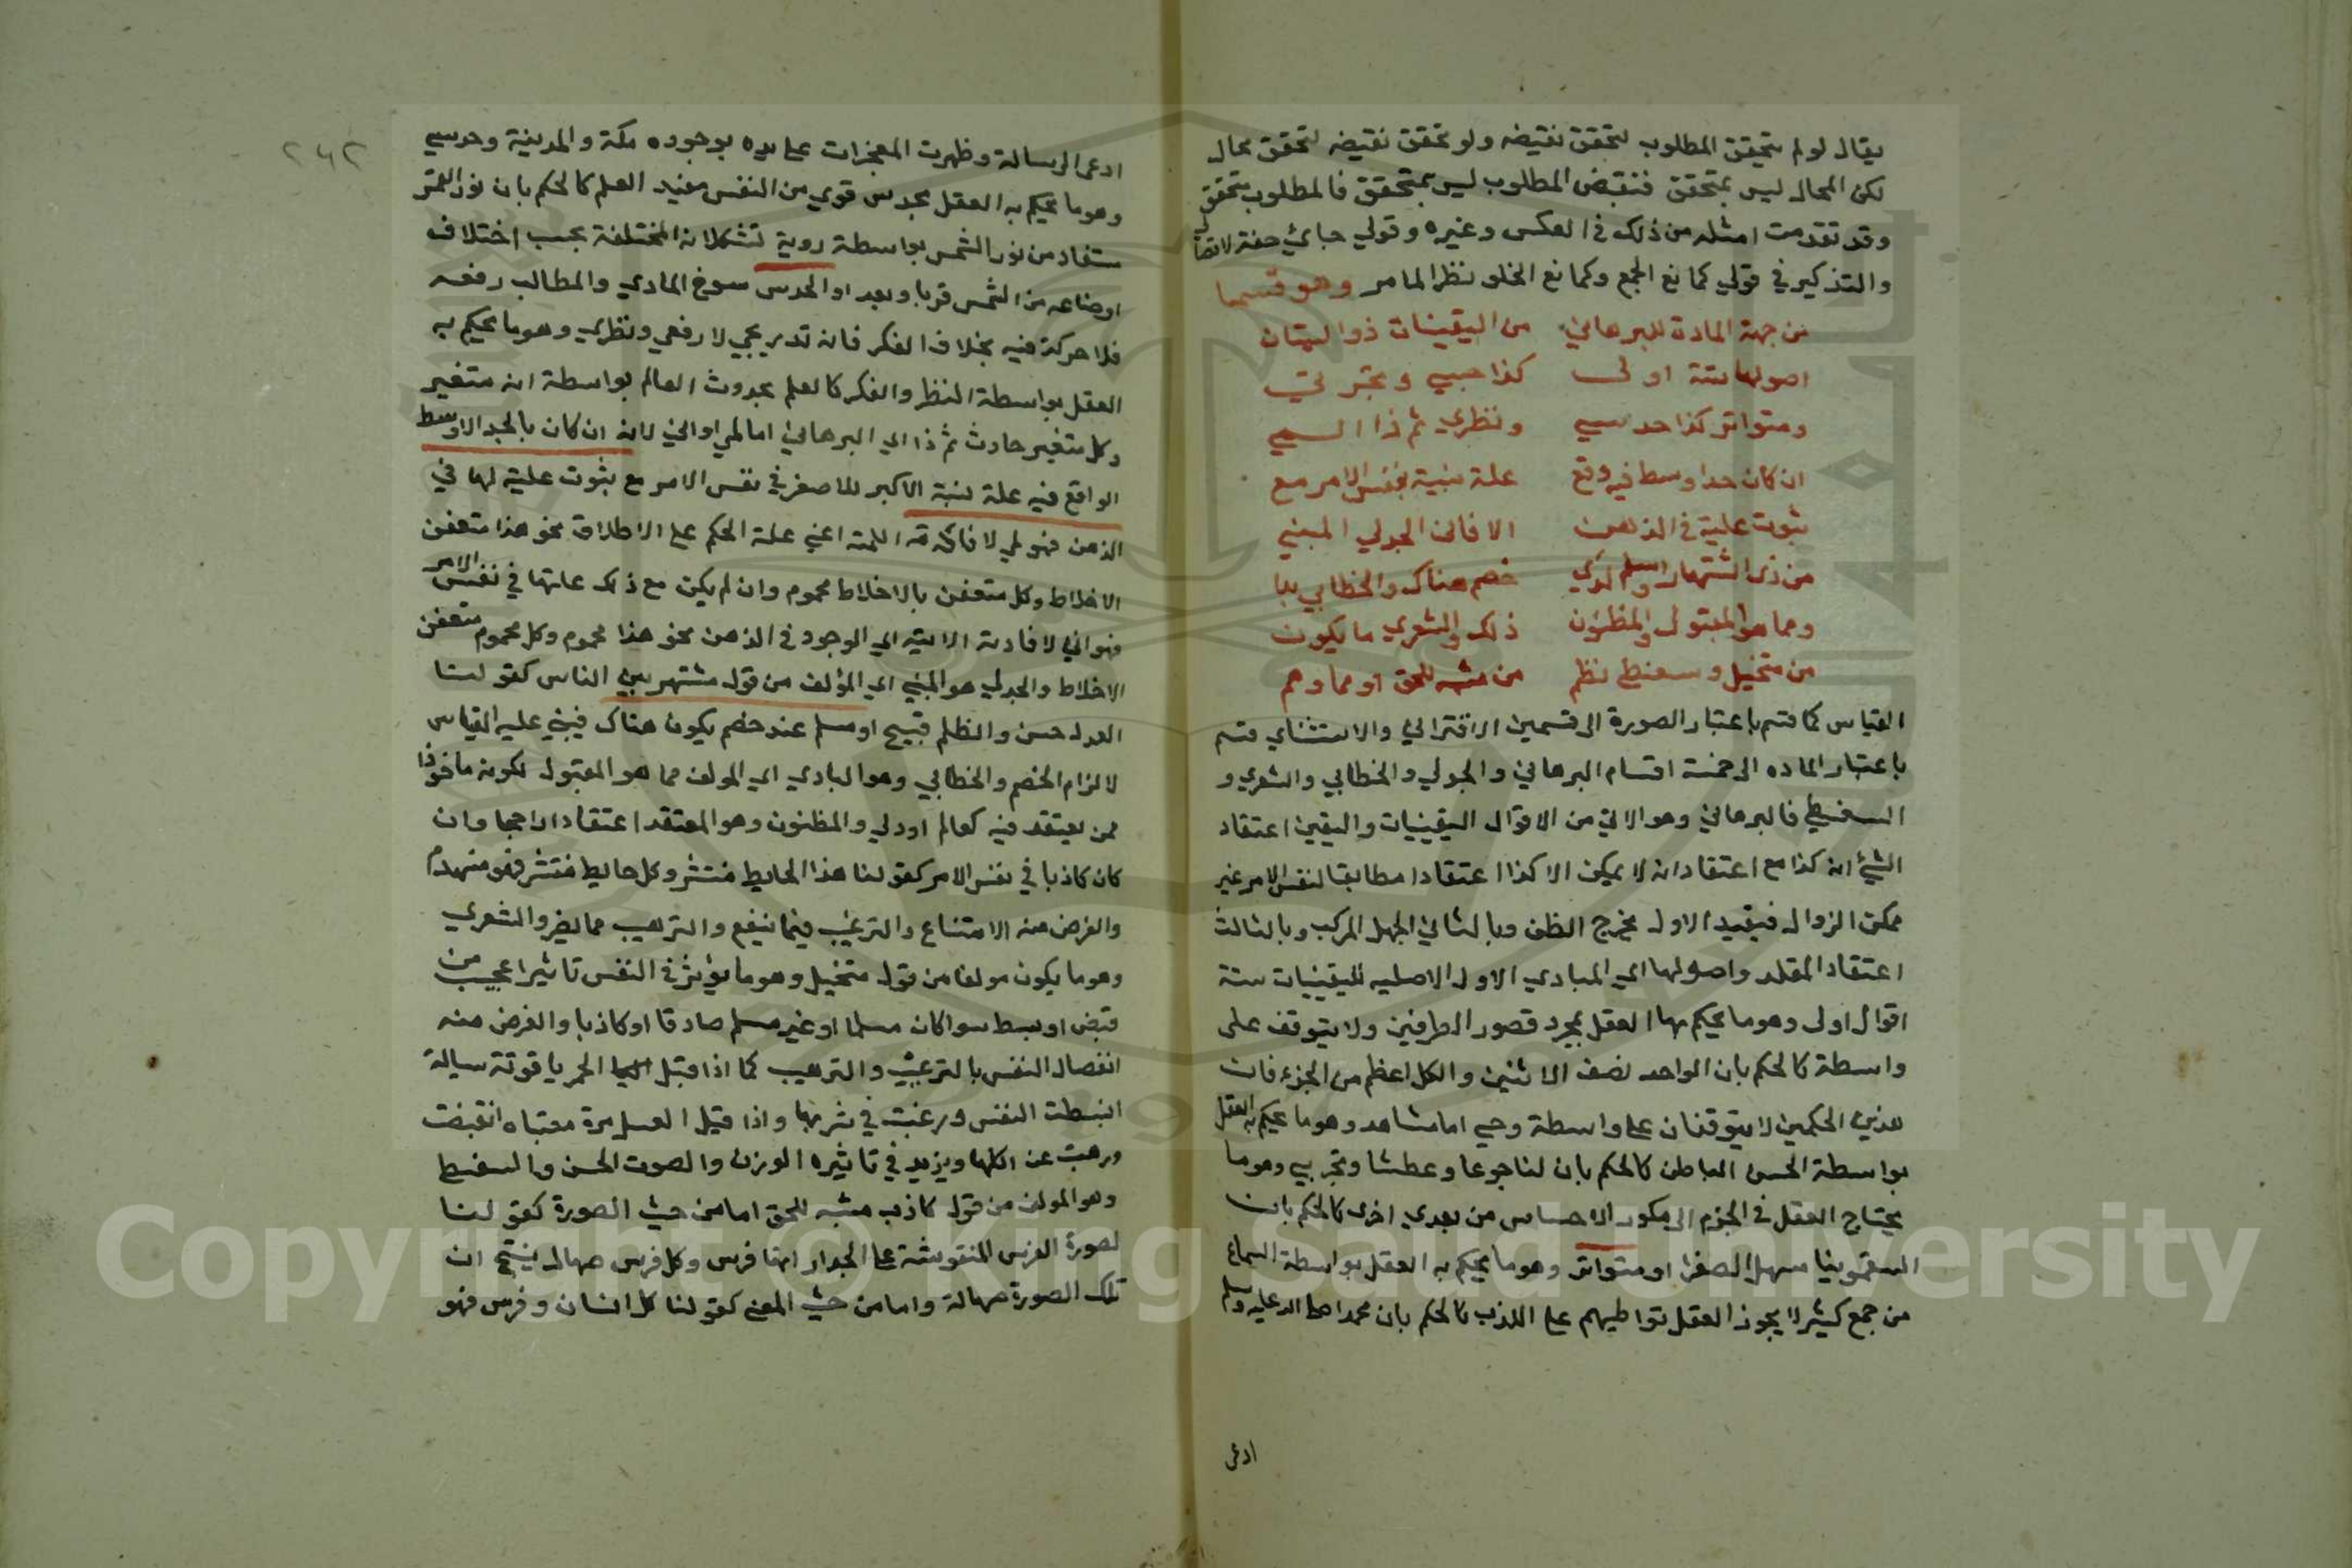 يقال لو لم يتحقق المطلوب لتحقق نقيضه ولو تحقق نقيضه لتحقق محال
لكن المحال ليس بمتحقق فنقيض المطلوب ليس بمتحقق فالمطلوب متحقق
وقد تقدمت امثله من ذلك في العكس وغيره وقولي حيائي صفة لاتصال
والتذكير في قولي كمانع الجمع وكمانع الخلو نظرا لما مر وهو قسمها
من جهة المادة للبرهاني من اليقينات ذو البيتان
اصولها ستة اولى كذا حسي وتجربي
ومتواتر كذا حدسي ونظري ثم ذا السمي
ان كان حد اوسط فيه وقع علة نسبة بنفس الامر مع
ثبوت علية في الذهن الا فاني الجدلي المبني
من ذي اشتهار او مسلم لدي خصم هناك والخطابي بدا
ومما هو المقبول والمظنون ذلك والشعري ما يكون
من متخيل وسفسط نظم من مشبه للحق او مما وهم
القياس كما قسم باعتبار الصورة الى قسمين الاقتراني والاستثناي قسم
باعتبار الماده الى خمسة اقسام البرهاني والجدلي والخطابي والشعري و
السفسطي فالبرهاني وهو الاتي من الاقوال اليقينيات واليقين اعتقاد
الشئ انه كذا مع اعتقاد انه لا يمكن الا كذا اعتقادا مطابقا لنفس الامر غير
ممكن الزوال فبقيد الاول مخرج الظن وبالثاني الجهل المركب وبالثالث
اعتقاد المقلد واصولها اي المبادي الاول الاصليه لليقينيات ستة
اقوال اولى وهو ما يحكم بها العقل بمجرد تصور الطرفين ولا يتوقف على
واسطة كالحكم بان الواحد نصف الاثنين والكل اعظم من الجزء فان
هذين الحكمين لا يتوقفان على واسطة وحسي اما مشاهد وهو ما يحكم به العقل
بواسطة الحس الباطن كالحكم بان لنا جوعا وعطشا وتجربي وهو ما
يحتاج العقل في الجزم الى مكرر الاحساس من بعدي اخرى كالحكم بان
السقمونيا مسهل الصفرا او متواتر وهو ما يحكم به العقل بواسطة السماع
من جمع كثير لا يجوز العقل تواطيهم على الكذب كالحكم بان محمدا صلى الله عليه وسلم
ادعى
٢٤٢
ادعى الرسالة وظهرت المعجزات على يده بوجوده مكة والمدينة وحدسي
وهو ما يحكم به العقل بحدس قوي من النفس مفيد العلم كالحكم بان نور القمر
مستفاد من نور الشمس بواسطة روية تشكلاته المختلفة بحسب اختلاف
اوضاعه من الشمس قربا وبعدا والحدس سنوح المادي والمطالب دفعه
فلا حركة فيه بخلاف الفكر فانه تدريجي لا دفعي ونظري وهو ما يحكم به
العقل بواسطة النظر والفكر كالعلم بحدوث العالم بواسطة انه متغير
وكل متغير حادث ثم ذا اي البرهاني اما لمي او اني لانه ان كان بالحد الاوسط
الواقع فيه علة نسبة الاكبر للاصغر في نفس الامر مع ثبوت علية لها في
الذهن فهو لمي لافادته اللمية اعني علة الحكم على الاطلاق نحو هذا متعفن
الاخلاط وكل متعفن بالاخلاط محموم وان لم يكن مع ذلك علتها في نفس الامر
فهو اني لافادته الانيه اي الوجود في الذهن نحو هذا محموم وكل محموم متعفن
الاخلاط والجدلي هو المبني اي المؤلف من قول مشتهر بين الناس كقولنا
العدل حسن والظلم قبيح او مسلم عند خصم يكون هناك فيبني عليه القياس
لالزام الخصم والخطابي وهو البادي اي المولف مما هو المقبول لكونه ماخوذا
ممن يعتقد فيه كعالم او ولي والمظنون وهو المعتقد اعتقادا راجحا وان
كان كاذبا في نفس الامر كقولنا هذا الحايط منتثر وكل حايط منتثر فهو منهدم
والغرض منه الامتناع والترغيب فيما ينفع والترهيب مما يضر والشعري
وهو ما يكون مولفا من قول متخيل وهو ما يؤثر في النفس تاثيرا عجيب من
قبض او بسط سوا كان مسلما او غير مسلم صادقا او كاذبا والغرض منه
انفصال النفس بالترغيب والترهيب كما اذا قيل الخمر ياقوتة سيالة
انبسطت النفس ورغبت في شربها واذا قيل العسل مرة مقياه انقبضت
ورهبت عن اكلها ويزيد في تاثيره الوزن والصوت الحسن والسفسط
وهو المولف من قول كاذب مشبه للحق اما من حيث الصورة كقولنا
لصورة الفرس المنقوشة على الجدار انها فرس وكل فرس صهال ينتج ان
تلك الصورة صهالة واما من حيث المعنى كقولنا كل انسان وفرس فهو
Copyright © King Saud University